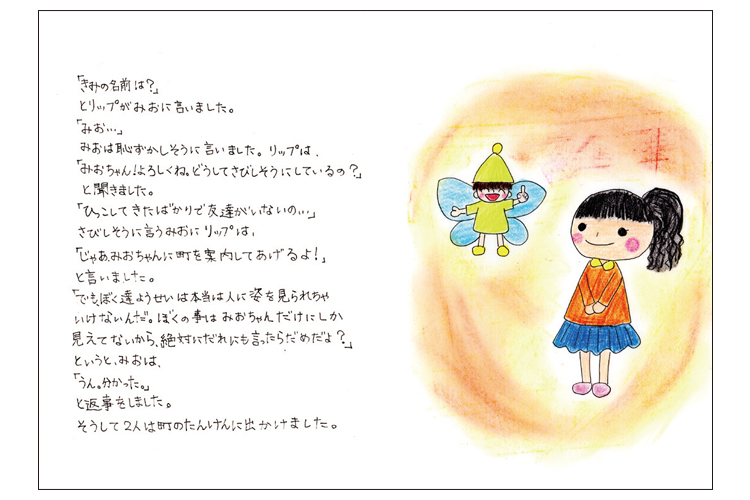 「きみの名前は?」
とリップがみおに言いました。
「みお…」
みおは恥ずかしそうに言いました。リップは、
「みおちゃん!よろしくね。どうしてさびしそうにしているの?」
と聞きました。
「ひっこしてきたばかりで友達がいないの…」
さびしそうに言うみおにリップは、
「じゃあ、みおちゃんに町を案内してあげるよ!」
と言いました。
「でも、ぼく達ようせいは本当は人に姿を見られちゃ
いけないんだ。ぼくの事はみおちゃんだけにしか
見えてないから、絶対にだれにも言ったらだめだよ?」
というと、みおは、
「うん。分かった。」
と返事をしました。
そうして2人は町のたんけんに出かけました。